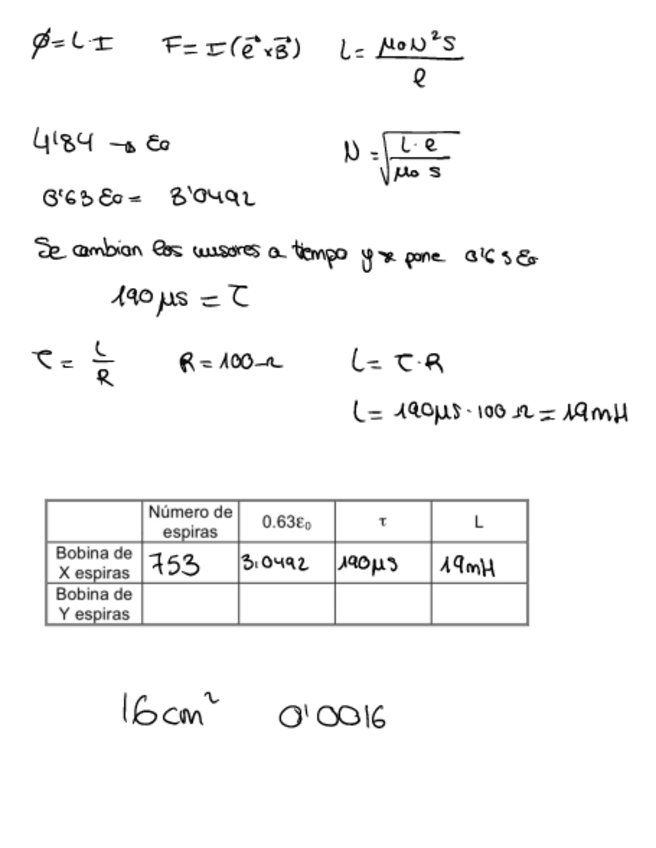 φ = L·I F = I(ℓ⃗ × B⃗) L = μ₀N²S / ℓ
4'84 → ε₀ N = √(L·ℓ / μ₀ S)
0'63 ε₀ = 3'0492
Se cambian los cursores a tiempo y se pone 0'63 ε₀
190 μs = τ
τ = L / R R = 100 Ω L = τ·R
L = 190 μs · 100 Ω = 19 mH
Número de espiras 0.63ε₀ τ L
Bobina de X espiras 753 3.0492 190 μs 19 mH
Bobina de Y espiras
16 cm² 0'0016